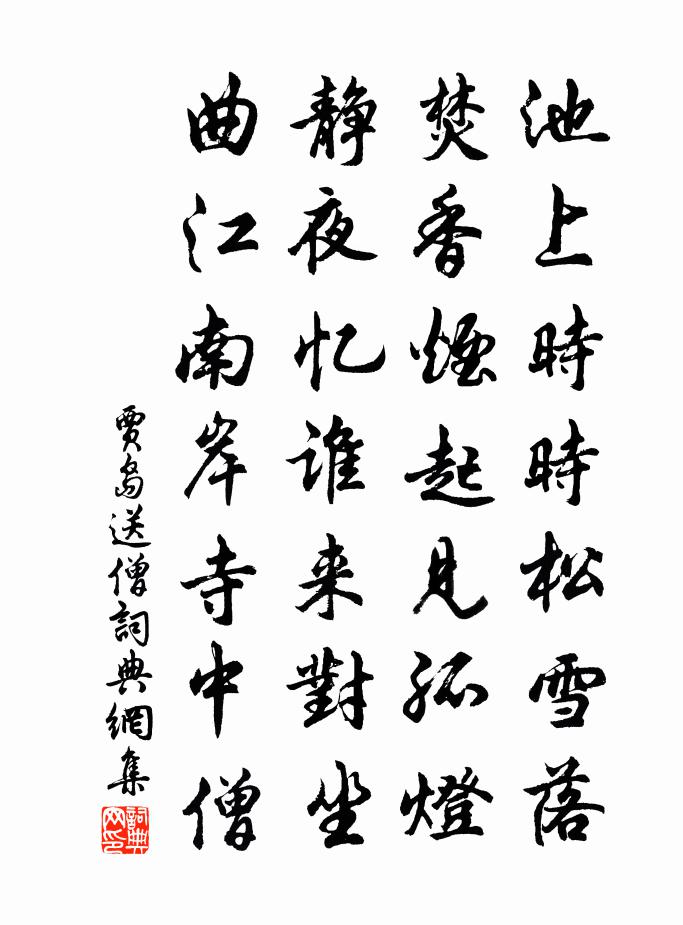 池上時時松雪落
焚香煙起見孤燈
静夜忆誰来對坐
曲江南岸寺中僧
賈島送僧詞典網集
詞典网印